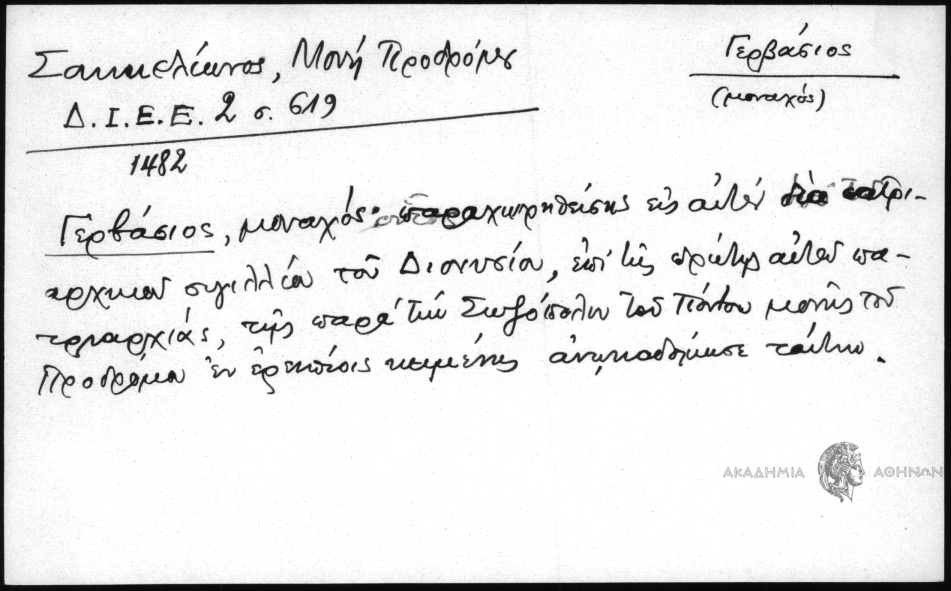 Σακκελίωνος, Μονή Προδρόμου
Γερβάσιος
(μοναχός)
Δ.Ι.Ε.Ε. 2 σ. 619
1482
Γερβάσιος, μοναχός· παραχωρηθείσης εἰς αὐτόν διά πατρι-
αρχικοῦ σιγιλλίου τοῦ Διονυσίου, ἐπί τῆς πρώτης αὐτοῦ πα-
τριαρχιάς, τῆς παρά τήν Σωζόπολιν τοῦ Πόντου μονῆς τοῦ
Προδρόμου ἐν ἐρειπίοις κειμένης ἀνῳκοδόμησε ταύτην.
ΑΚΑΔΗΜΙΑ ΑΘΗΝΩΝ